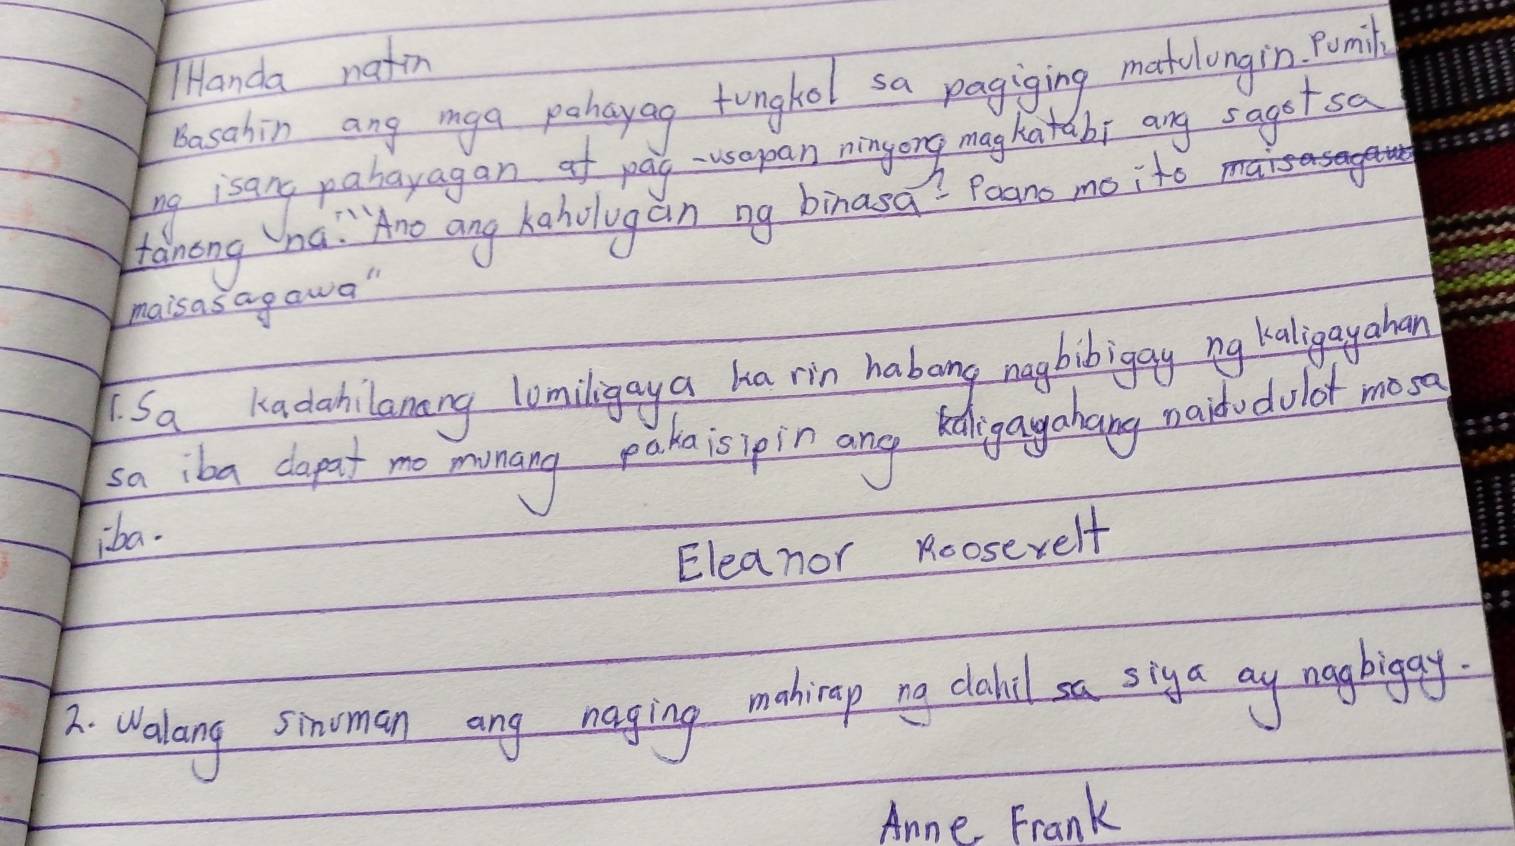 IHanda natin
Basahin ang mga pahayag tungkol sa pagiging matulungin. Pumili
ng isang pahayagan at pag-usapan ninyong magkatabi ang sagot sa
tanong na. "Ano ang kahulugan ng binasa? Paano mo ito maisasagawa
maisasagawa"
1. Sa kadahilanang lumiligaya ka rin habang nagbibigay ng kaligayahan
sa iba dapat mo munang pakaisipin ang kaligayahang naidudulot mo sa
iba.
Eleanor Roosevelt
2. Walang sinuman ang naging mahirap ng dahil sa siya ay nagbigay.
Anne Frank